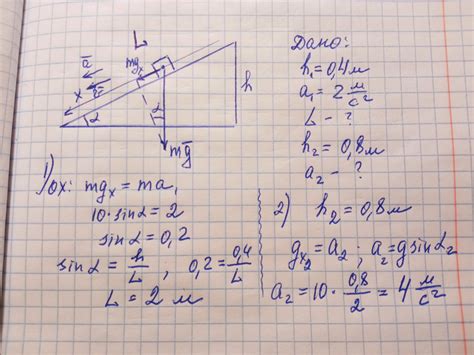 L
h
mgₓ
a̅
x
v̅
α
α
mg̅
Дано:
h₁=0,4м
a₁=2 м/с²
L - ?
h₂=0,8м
a₂ - ?
1) ox: mgₓ = ma₁
10·sinα=2
sinα=0,2
sinα = h/L , 0,2=0,4/L
L = 2 м
2) h₂=0,8м
gₓ₂=a₂ ; a₂=gsinα₂
a₂=10·0,8/2=4 м/с²